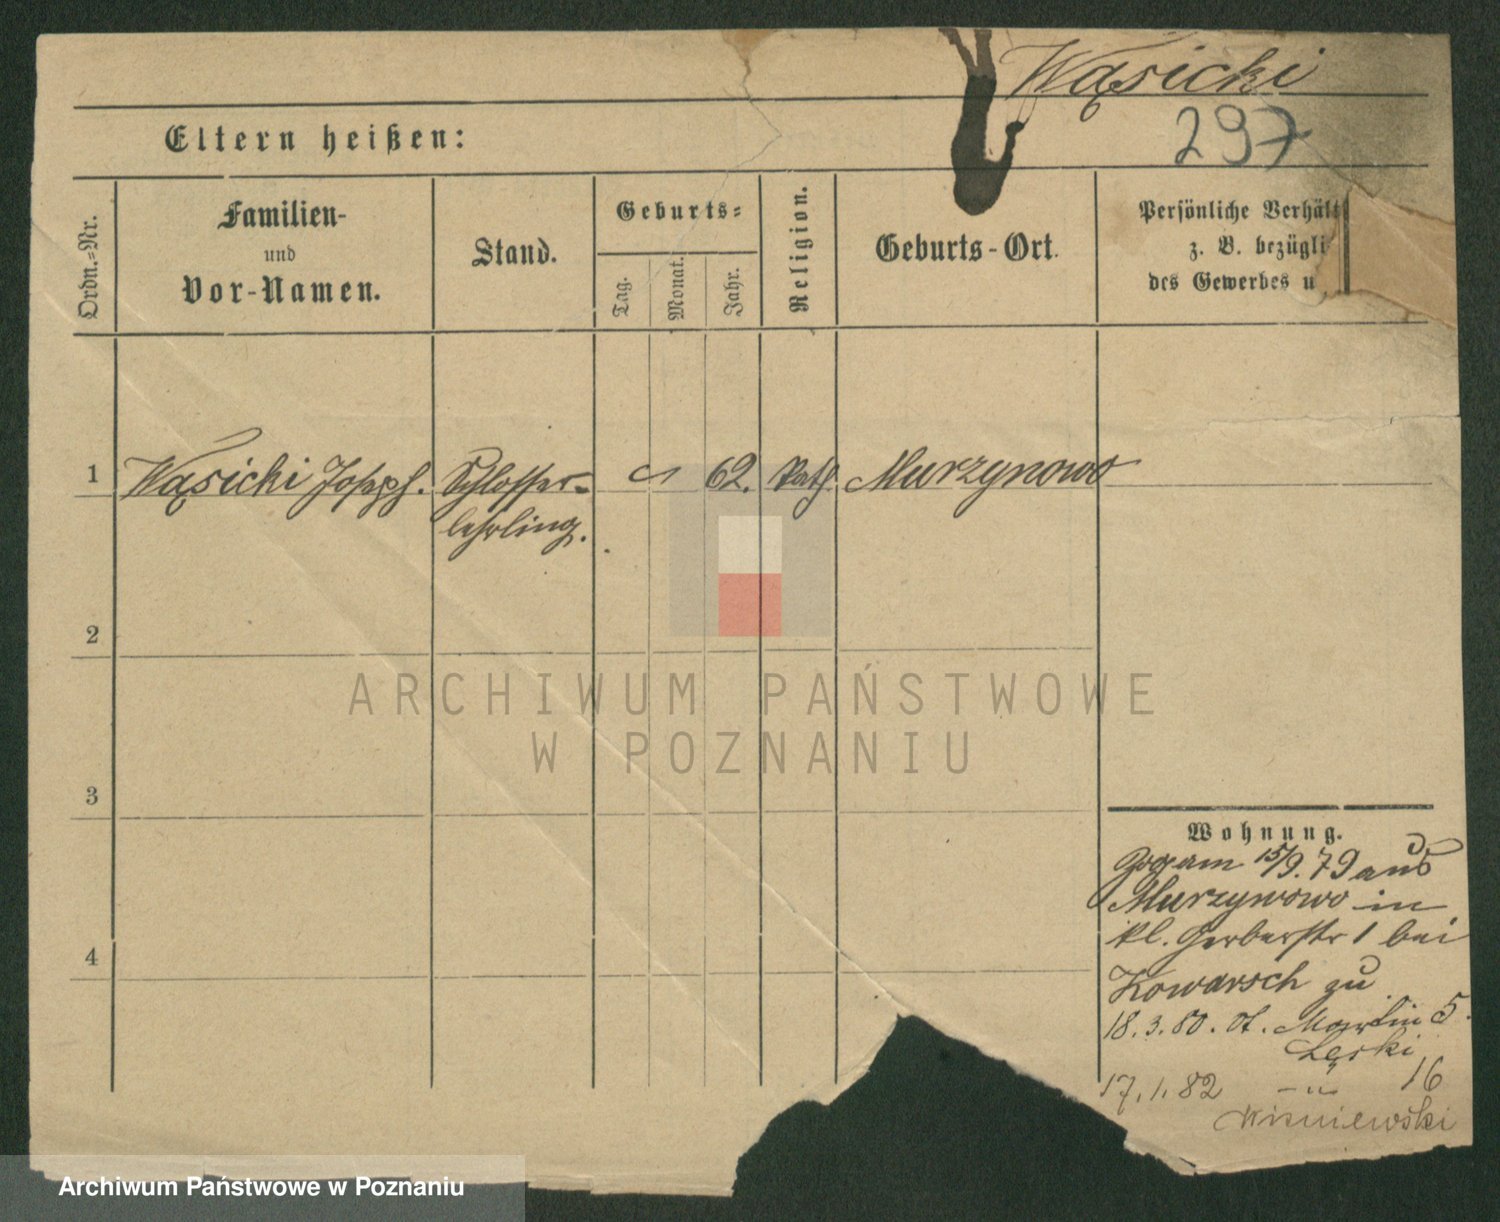 Wąsicki
297
Eltern heißen:
Ordn.-Nr.
Familien-
und
Vor-Namen.
Stand.
Geburts-
Tag.
Monat.
Jahr.
Religion.
Geburts-Ort.
Persönliche Verhält
z. B. bezügli
des Gewerbes u
1 Wąsicki Joseph. Schlosser- 62. Kath. Murzynowo
lehrling.
2
3
4
Wohnung.
am 15/9. 79 aus
Murzynowo in
kl. Gerberstr 1 bei
Kowarsch zu
18. 3. 80. St. Martin 5.
Łęski
17. 1. 82 — " — 16
Wiśniewski
ARCHIWUM PAŃSTWOWE
W POZNANIU
Archiwum Państwowe w Poznaniu